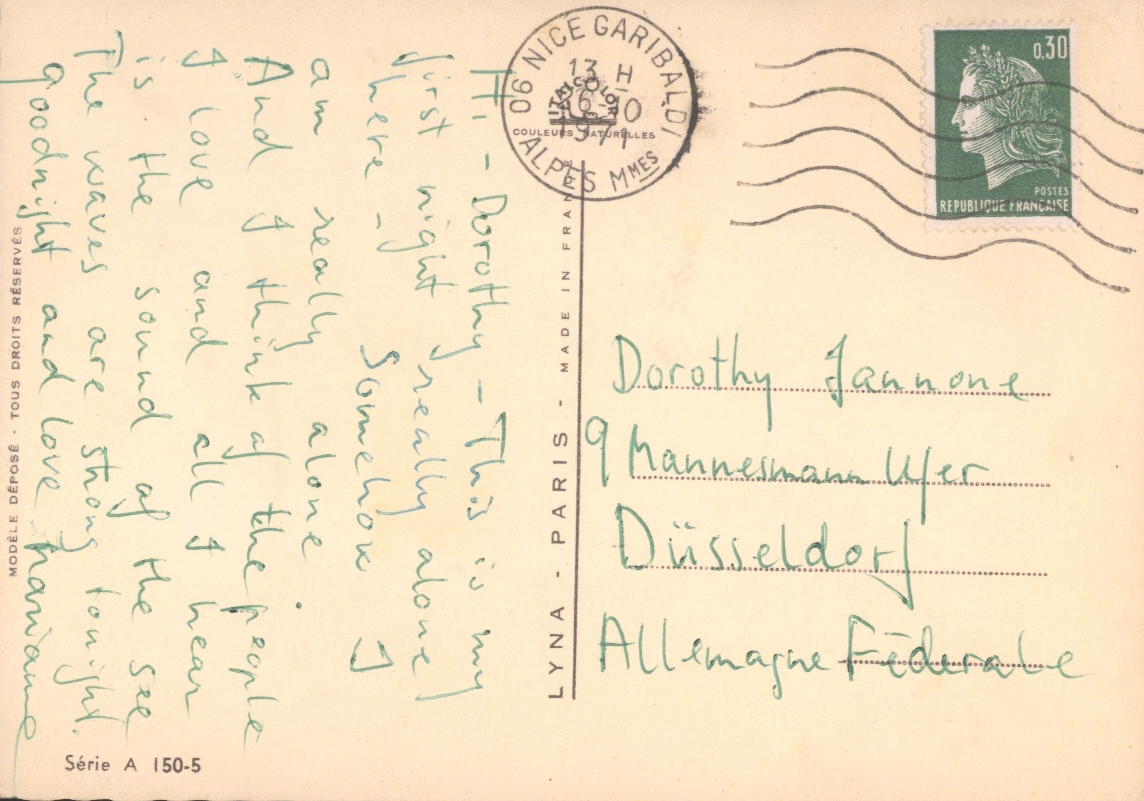 Hi - Dorothy - This is my
first night really alone
here - Somehow I
am really alone.
And I think of the people
I love and all I hear
is the sound of the see
The waves are strong tonight.
goodnight and love marianne
MODÈLE DÉPOSÉ - TOUS DROITS RÉSERVÉS
Série A 150-5
LYNA - PARIS - MADE IN FRANCE
ITALCOLOR
COULEURS NATURELLES
06 NICE GARIBALDI
13 H
6-10
1971
ALPES MMES
0,30
POSTES
REPUBLIQUE FRANÇAISE
Dorothy Iannone
9 Mannesmann Ufer
Düsseldorf
Allemagne Féderale